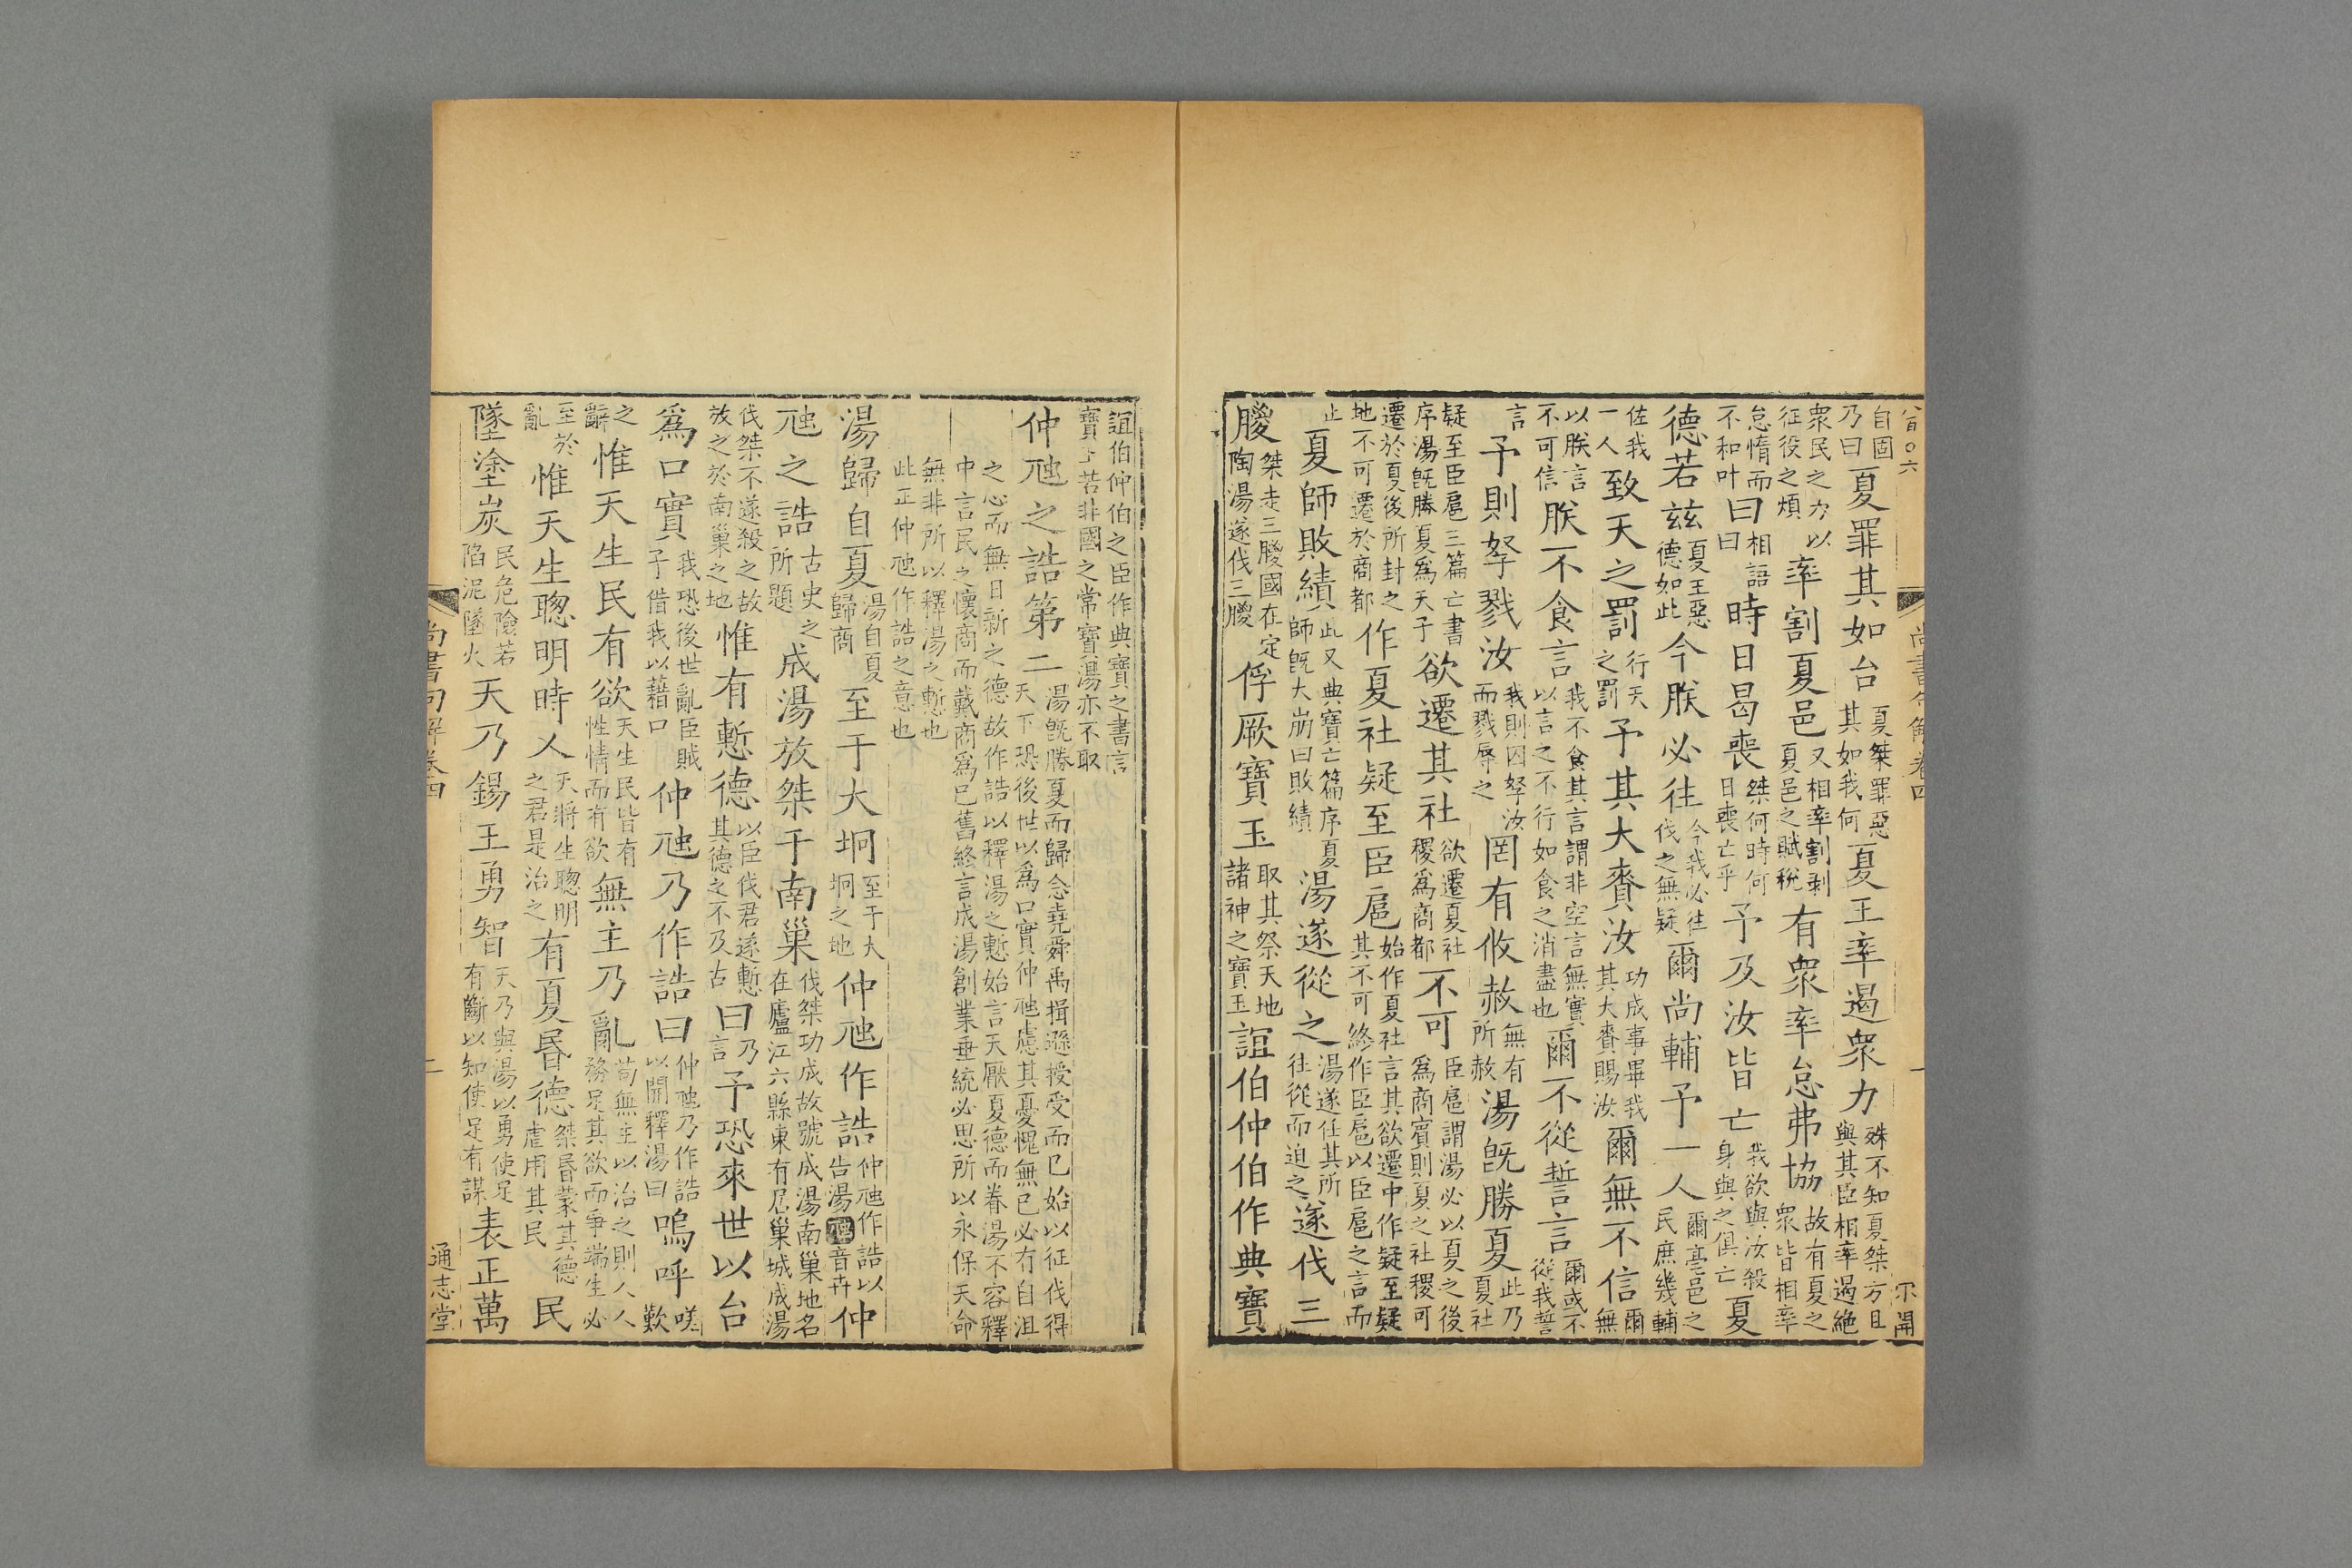 八百〇六 尚書句解卷四 一
自固乃曰夏罪其如台夏桀罪惡其如我何夏王率遏衆力殊不知夏桀方且與其臣相率遏絶
衆民之力以征役之煩率割夏邑又相率割剥夏邑之賦稅有衆率怠弗協故有夏之衆皆相率
怠惰而不和叶曰相語曰時日曷喪桀何時何日喪亡乎予及汝皆亡我欲與汝殺身與之俱亡夏
德若兹夏王惡德如此今朕必往今我必往伐之無疑爾尚輔予一人爾亳邑之民庶幾輔
佐我一人致天之罰行天之罰予其大賚汝功成事畢我其大賚賜汝爾無不信爾無
以朕言不可信朕不食言我不食其言謂非空言無實以言之不行如食之消盡也爾不從誓言爾或不從我誓
言予則孥戮汝我則囚孥汝而戮辱之罔有攸赦無有所赦湯旣勝夏此乃夏社
疑至臣扈三篇亡書序湯旣勝夏爲天子欲遷其社欲遷夏社稷爲商都不可臣扈謂湯必以夏之後爲商賓則夏之社稷可
遷於夏後所封之地不可遷於商都作夏社疑至臣扈始作夏社言其欲遷中作疑至疑其不可終作臣扈以臣扈之言而
止夏師敗績此又典寶亡篇序夏師旣大崩曰敗績湯遂從之湯遂任其所往從而迫之遂伐三
朡桀走三朡國在定陶湯遂伐三朡俘厥寶玉取其祭天地諸神之寶玉誼伯仲伯作典寶
誼伯仲伯之臣作典寶之書言寶玉若非國之常寶湯亦不取
仲虺之誥第二湯旣勝夏而歸念堯舜禹揖遜授受而已始以征伐得天下恐後世以爲口實仲虺慮其憂愧無已必有自沮
之心而無日新之德故作誥以釋湯之慙始言天厭夏德而眷湯不容釋中言民之懷商而戴商爲已舊終言成湯創業垂統必思所以永保天命
無非所以釋湯之慙也此正仲虺作誥之意也
湯歸自夏湯自夏歸商至于大坰至于大坰之地仲虺作誥仲虺作誥以告湯虺音卉仲
虺之誥古史之所題成湯放桀于南巢伐桀功成故號成湯南巢地名在廬江六縣東有居巢城成湯
伐桀不遂殺之故放之於南巢之地惟有慙德以臣伐君遂慙其德之不及古曰乃言予恐來世以台
爲口實我恐後世亂臣賊子借我以藉口仲虺乃作誥曰仲虺乃作誥以開釋湯曰嗚呼嗟歎
之辭惟天生民有欲天生民皆有性情而有欲無主乃亂苟無主以治之則人人務足其欲而爭端生必
至於亂惟天生聰明時乂天將生聰明之君是治之有夏昬德桀昬蒙其德虐用其民民
墜塗炭民危險若陷泥墜火天乃錫王勇智天乃與湯以勇使足有斷以知使足有謀表正萬
尚書句解卷四 二 通志堂